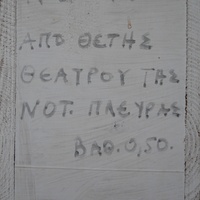 ΑΠΟ ΘΕΤΗΣ
ΘΕΑΤΡΟΥ ΤΗΣ
ΝΟΤ. ΠΛΕΥΡΑΣ
ΒΑΘ. 0,50.